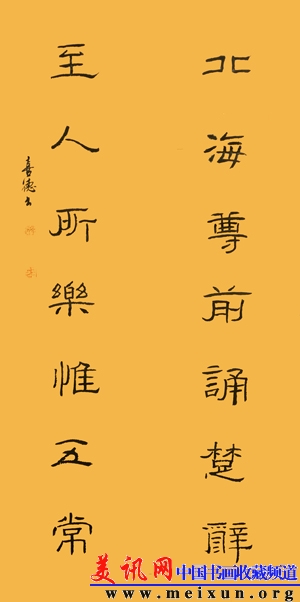 北海尊前誦楚辭
至人所樂惟五常
喜德书
美讯网 中国书画收藏频道
www.meixun.org